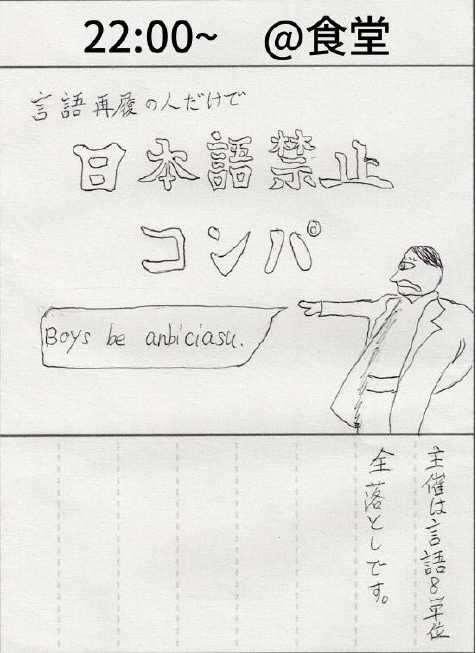 22:00~ @食堂
言語再履の人だけで
日本語禁止
コンパ
Boys be anbiciasu.
主催は言語8単位
全落としです。